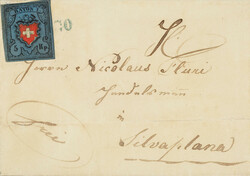 RAYON I
5 Rp.
Herrn Nicolaus Flüri
Handelsmann
in
Silvaplana
Frei